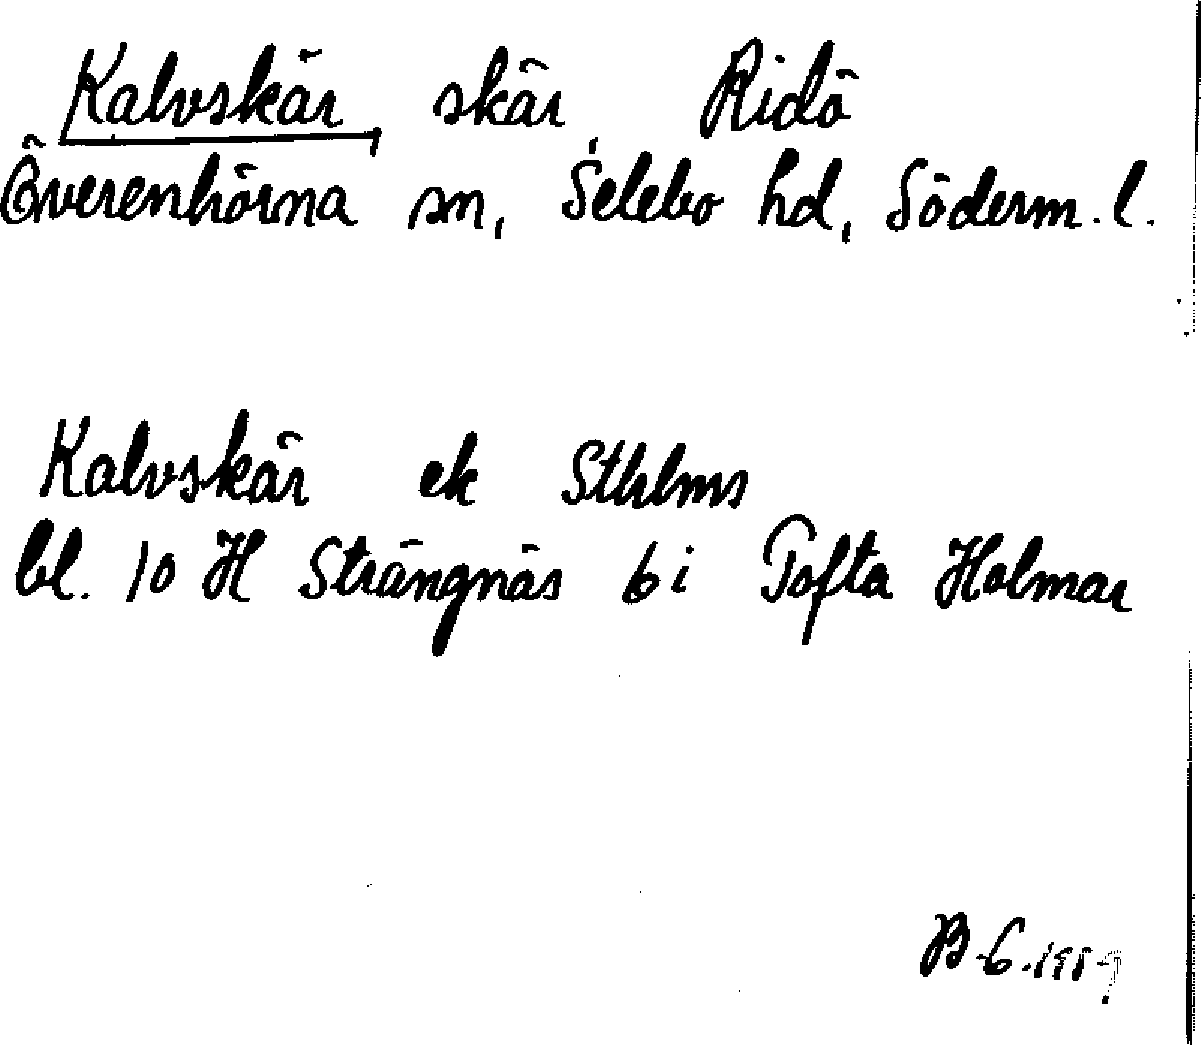 Kalvskär, skär, Ridö
Överenhörna sn, Selebo hd, Söderm. l.
Kalvskär ek Sthlms
bl. 10 H Strängnäs 6 i Tofta Holmar